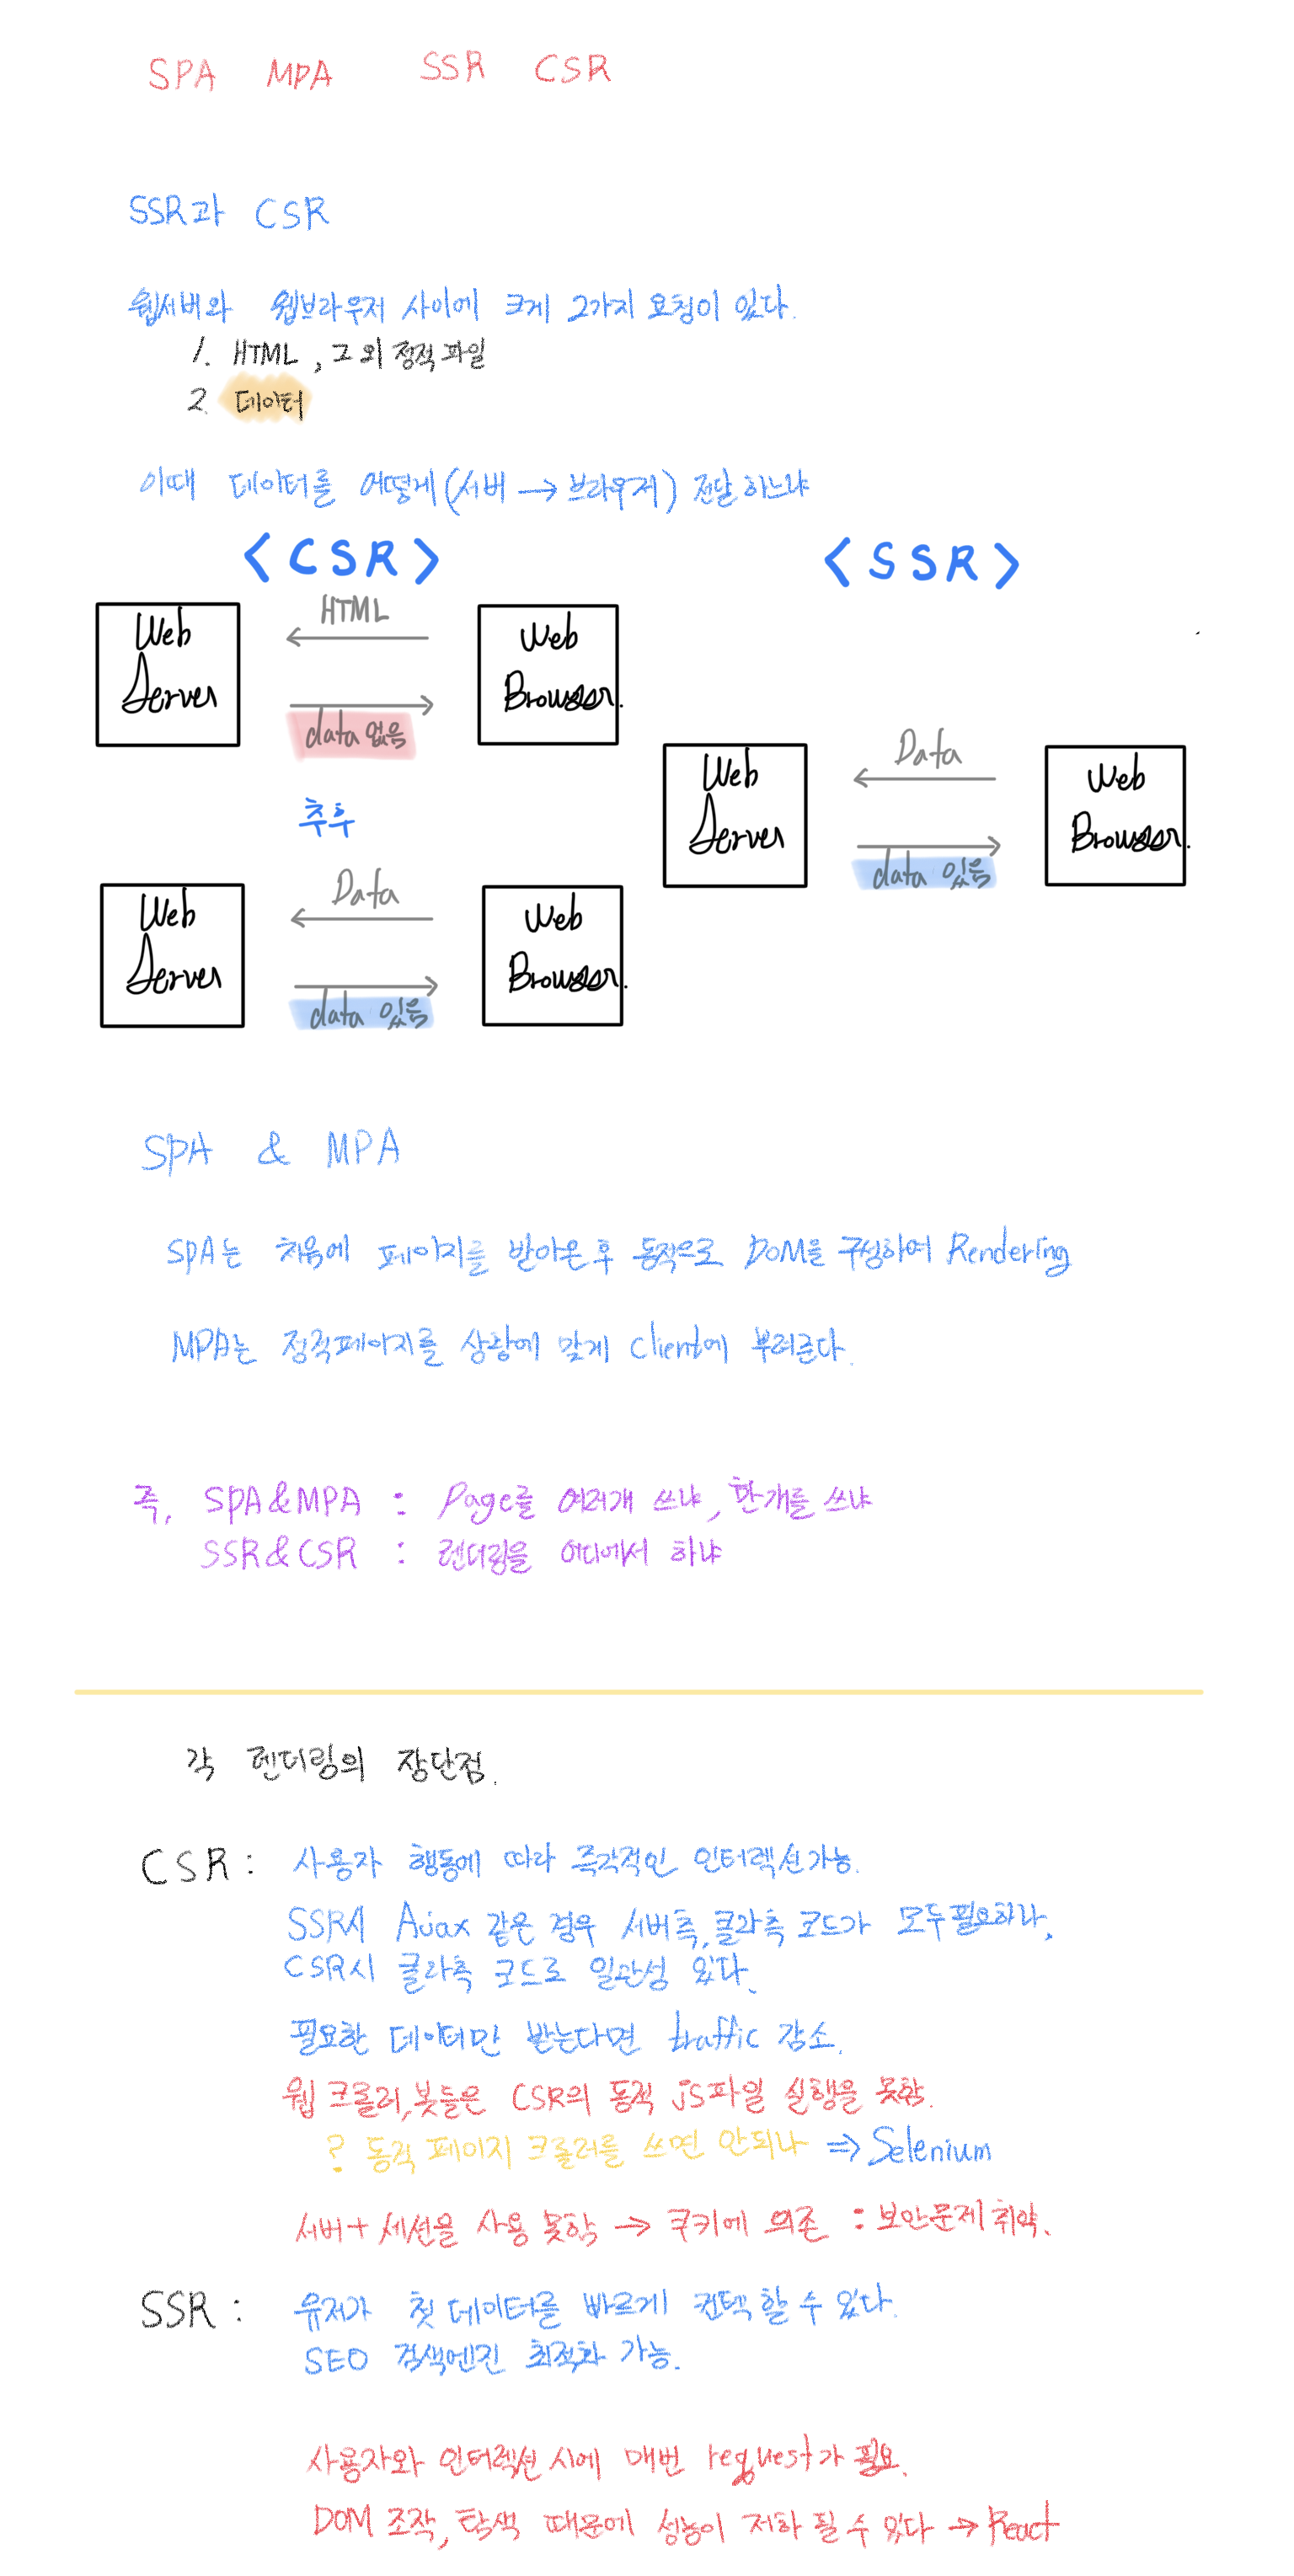 SPA MPA SSR CSR
SSR과 CSR
웹서버와 웹브라우저 사이에 크게 2가지 요청이 있다.
1. HTML, 그 외 정적 파일
2. 데이터
이때 데이터를 어떻게(서버 → 브라우저) 전달 하느냐
< CSR >
< SSR >
Web Server
HTML
data 없음
Web Browser.
추후
Web Server
Data
data 있음
Web Browser.
Web Server
Data
data 있음
Web Browser.
SPA & MPA
SPA는 처음에 페이지를 받아온 후 동적으로 DOM을 구성하여 Rendering
MPA는 정적페이지를 상황에 맞게 client에 뿌려준다.
즉, SPA&MPA : Page를 여러개 쓰냐, 한개를 쓰냐
SSR&CSR : 렌더링을 어디에서 하냐
각 렌더링의 장단점.
CSR : 사용자 행동에 따라 즉각적인 인터렉션가능.
SSR시 Ajax 같은 경우 서버측, 클라측 코드가 모두필요하나,
CSR시 클라측 코드로 일관성 있다.
필요한 데이터만 받는다면 traffic 감소.
웹 크롤러, 봇들은 CSR의 동적 js파일 실행을 못함.
? 동적 페이지 크롤러를 쓰면 안되나 ⇒ Selenium
서버+세션을 사용 못함 → 쿠키에 의존 : 보안문제 취약.
SSR : 유저가 첫 데이터를 빠르게 컨텍 할 수 있다.
SEO 검색엔진 최적화 가능.
사용자와 인터렉션 시에 매번 request가 필요.
DOM 조작, 탐색 때문에 성능이 저하 될 수 있다 → React